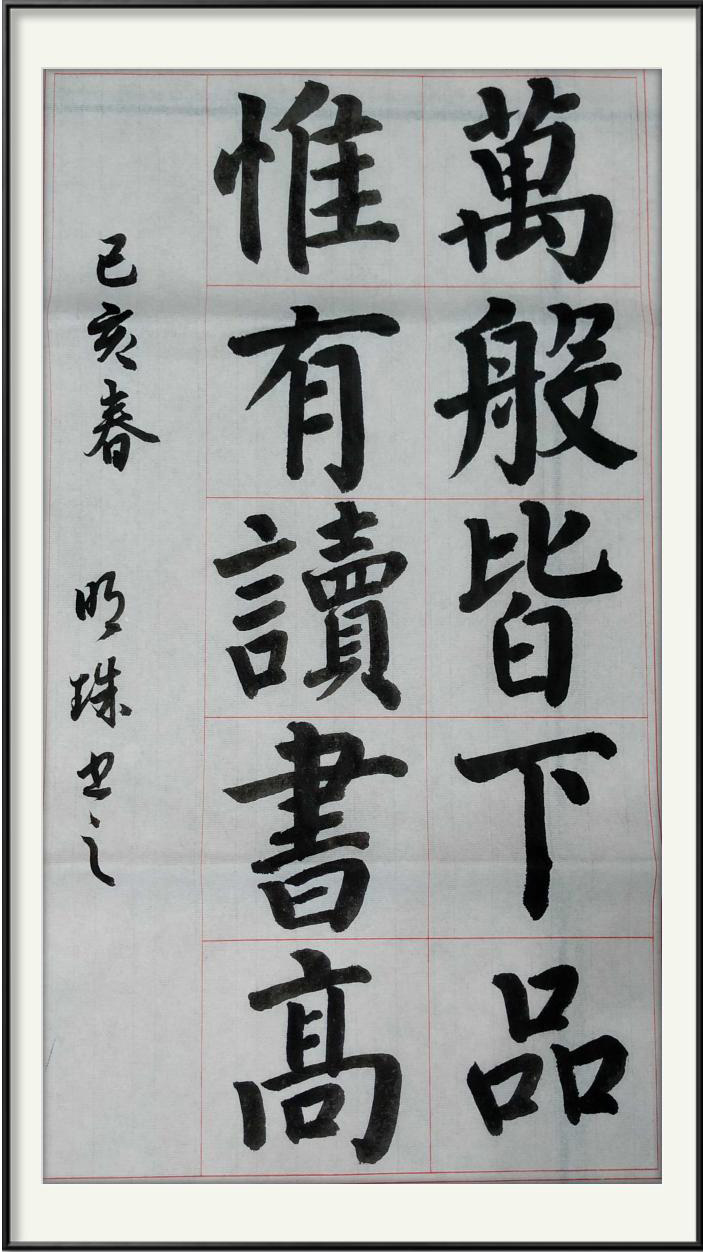 萬般皆下品
惟有讀書高
己亥春 明珠书之